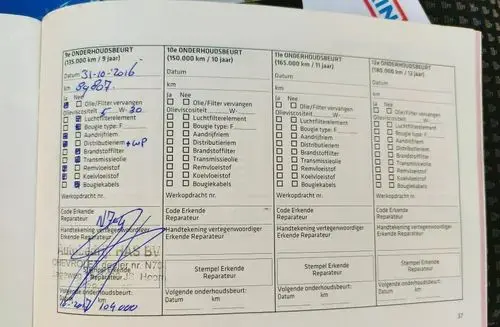 9e ONDERHOUDSBEURT
(135.000 km / 9 jaar)
Datum 31-10-2016
km 84807.
Ja Nee
Olie/Filter vervangen
Olieviscositeit 5 W- 30
Luchtfilterelement
Bougie type: F
Aandrijfriem
Distributieriem + WP
Brandstoffilter
Transmissieolie
Remvloeistof
Koelvloeistof
Bougiekabels
Werkopdracht nr.
Code Erkende
Reparateur
Handtekening vertegenwoordiger
Erkende Reparateur
HAS BV
CHEVROLET dealer nr. N79
Stempel Erkende
Reparateur
Hoorn
Volgende onderhoudsbeurt:
Datum km
2017 104.000
10e ONDERHOUDSBEURT
(150.000 km / 10 jaar)
Datum
km
Ja Nee
Olie/Filter vervangen
Olieviscositeit W-
Luchtfilterelement
Bougie type: F
Aandrijfriem
Distributieriem
Brandstoffilter
Transmissieolie
Remvloeistof
Koelvloeistof
Bougiekabels
Werkopdracht nr.
Code Erkende
Reparateur
Handtekening vertegenwoordiger
Erkende Reparateur
Stempel Erkende
Reparateur
Volgende onderhoudsbeurt:
Datum km
11e ONDERHOUDSBEURT
(165.000 km / 11 jaar)
Datum
km
Ja Nee
Olie/Filter vervangen
Olieviscositeit W-
Luchtfilterelement
Bougie type: F
Aandrijfriem
Distributieriem
Brandstoffilter
Transmissieolie
Remvloeistof
Koelvloeistof
Bougiekabels
Werkopdracht nr.
Code Erkende
Reparateur
Handtekening vertegenwoordiger
Erkende Reparateur
Stempel Erkende
Reparateur
Volgende onderhoudsbeurt:
Datum km
12e ONDERHOUDSBEURT
(180.000 km / 12 jaar)
Datum
km
Ja Nee
Olie/Filter vervangen
Olieviscositeit W-
Luchtfilterelement
Bougie type: F
Aandrijfriem
Distributieriem
Brandstoffilter
Transmissieolie
Remvloeistof
Koelvloeistof
Bougiekabels
Werkopdracht nr.
Code Erkende
Reparateur
Handtekening vertegenwoordiger
Erkende Reparateur
Stempel Erkende
Reparateur
Volgende onderhoudsbeurt:
Datum km
37